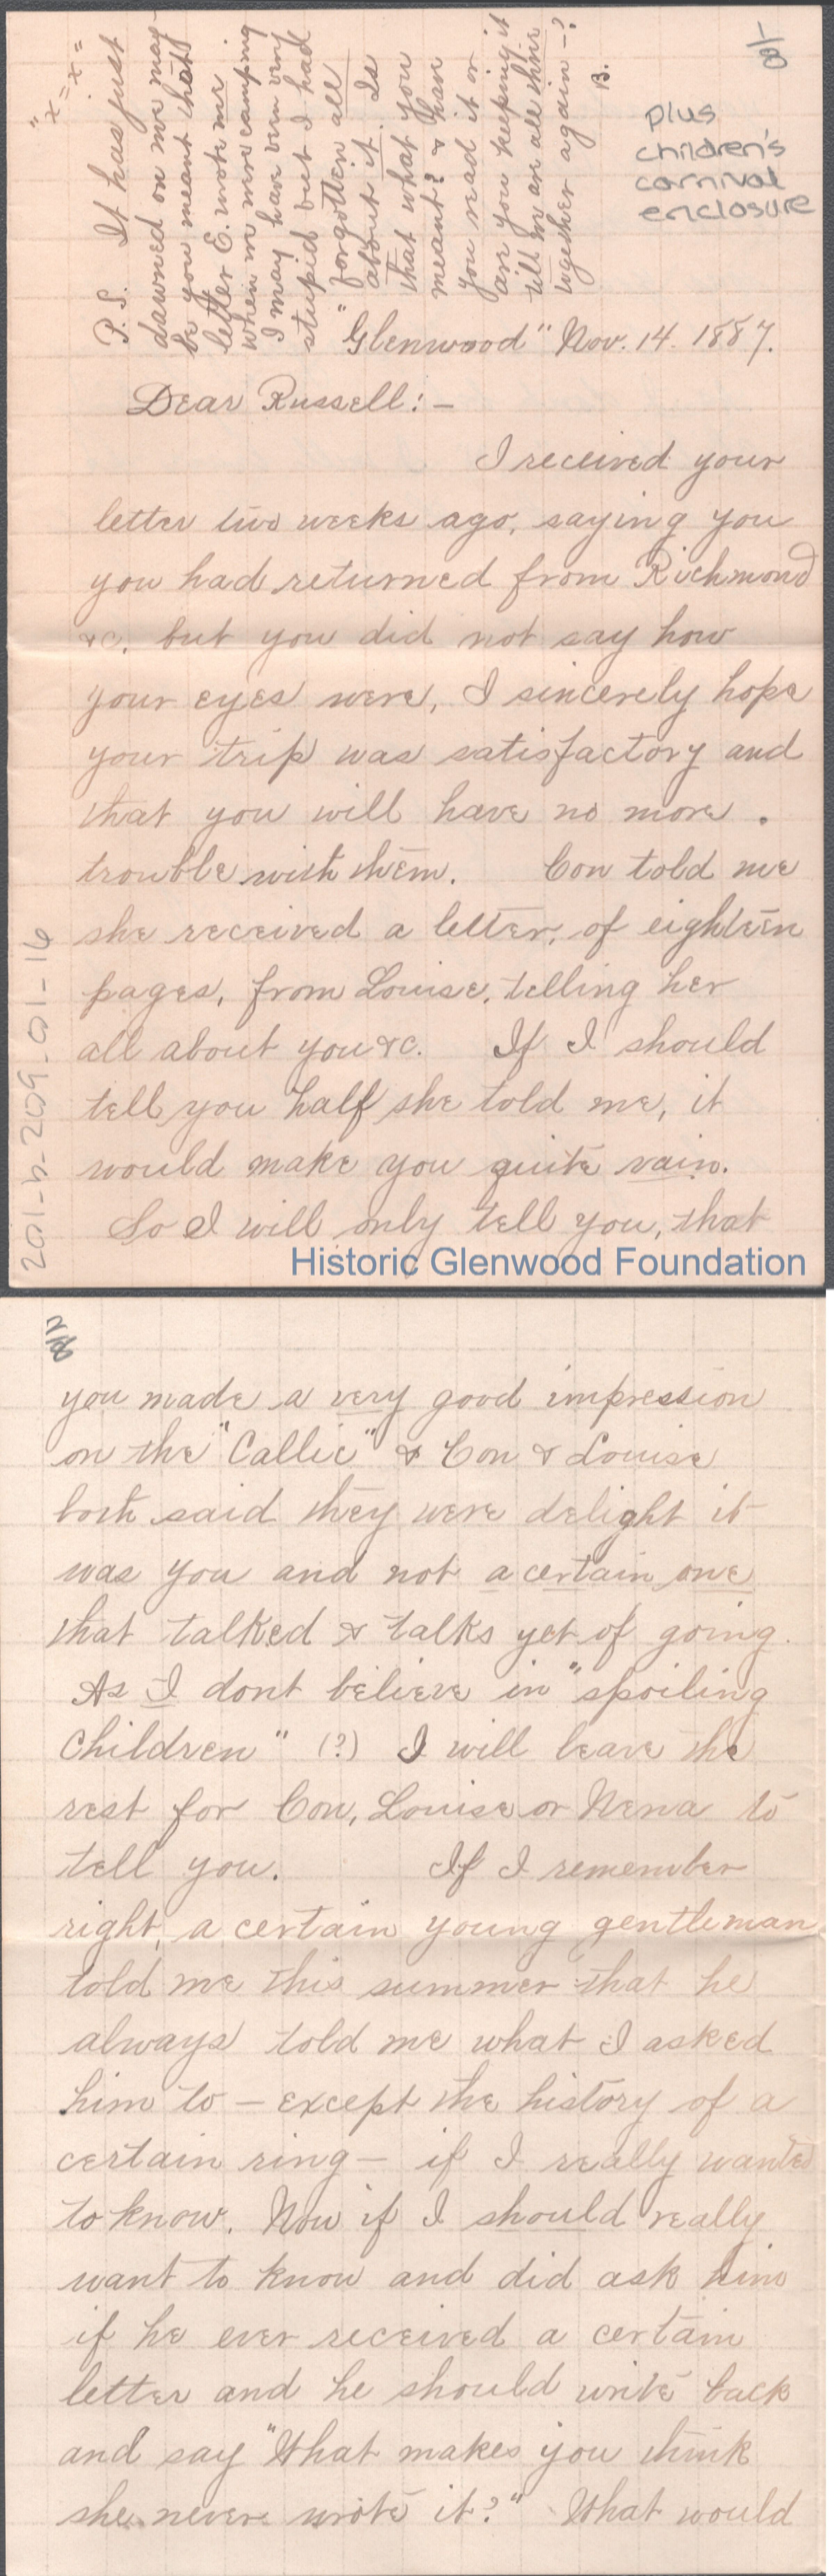 1/8
plus
children's
carnival
enclosure
"x = x =
P.S. It has just
dawned on me may-
be you meant that
letter E. wrote me
when we were camping
I may have been very
stupid but I had
forgotten all
about it. Is
that what you
meant? & have
you read it or
are you keeping it
till we are all there
together again -?
B.
"Glenwood" Nov. 14. 1887.
Dear Russell:-
I received your
letter two weeks ago, saying you
you had returned from Richmond
&c. but you did not say how
your eyes were, I sincerely hope
your trip was satisfactory and
that you will have no more .
trouble with them. Con told me
she received a letter, of eighteen
pages, from Louise, telling her
all about you &c. If I should
tell you half she told me, it
would make you quite vain.
So I will only tell you, that
201-b-209-01-16
Historic Glenwood Foundation
2/8
you made a very good impression
on the "Callie" & Con & Louise
both said they were delight it
was you and not a certain one
that talked & talks yet of going.
As I dont believe in "spoiling
children" (?) I will leave the
rest for Con, Louise or Nena to
tell you. If I remember
right, a certain young gentleman
told me this summer that he
always told me what I asked
him to - except the history of a
certain ring - if I really wanted
to know. Now if I should really
want to know and did ask him
if he ever received a certain
letter and he should write back
and say "What makes you think
she never wrote it?" What would